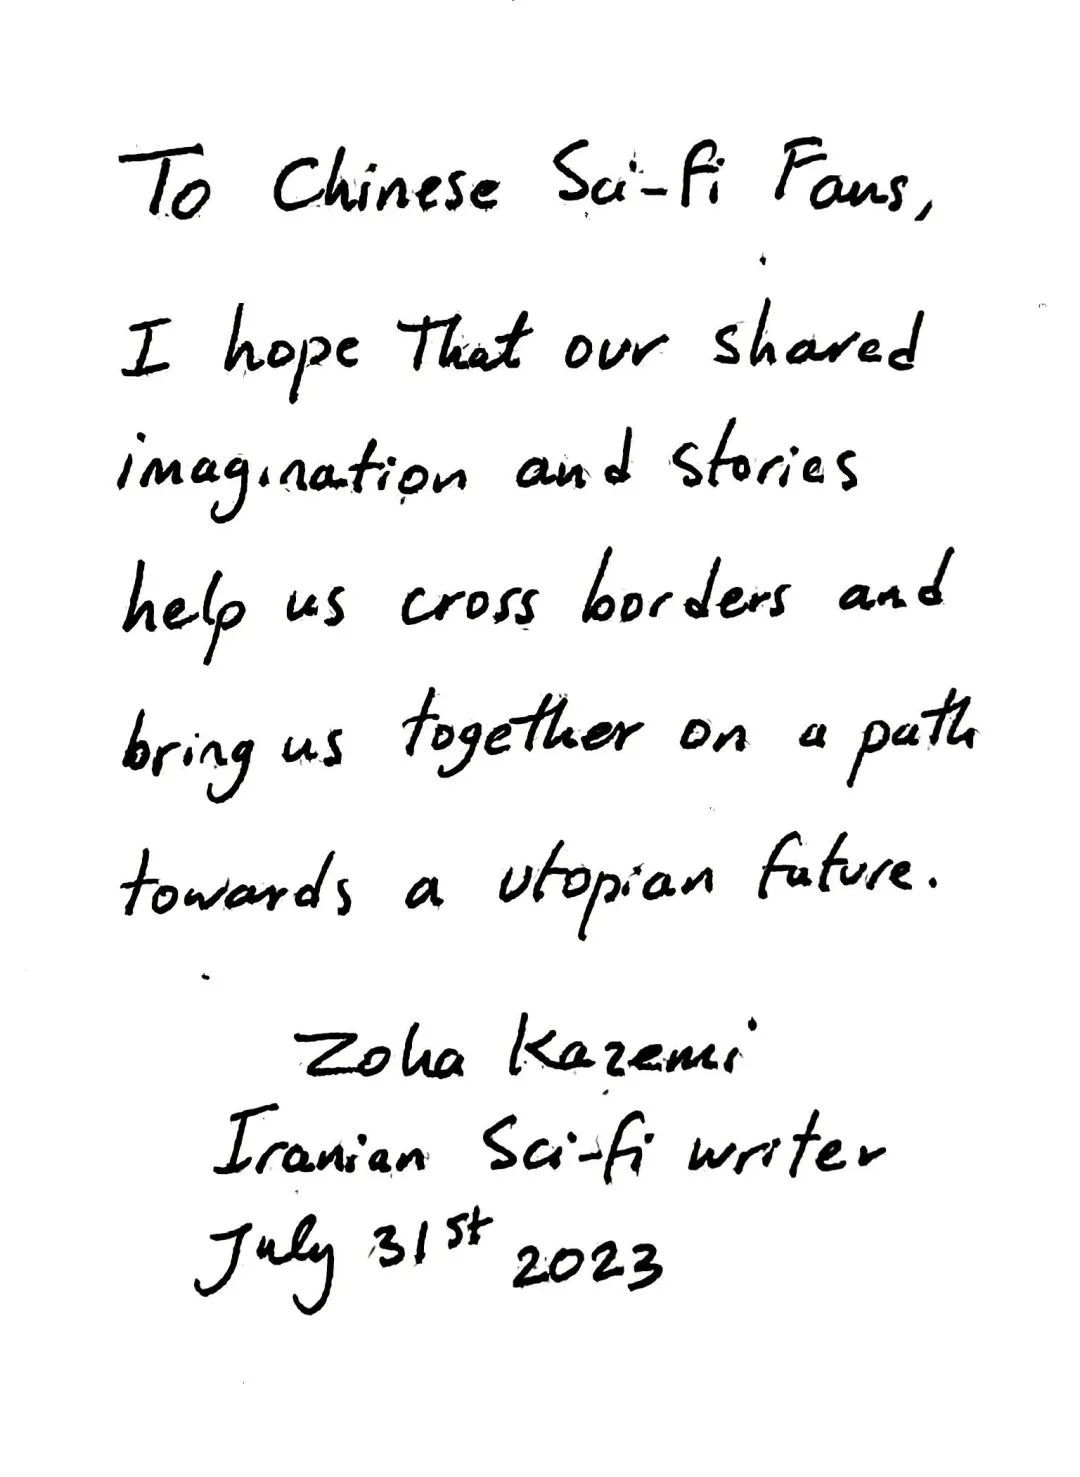 To Chinese Sci-fi Fans,
I hope That our shared
imagination and stories
help us cross borders and
bring us together on a path
towards a utopian future.
Zoha Kazemi
Iranian Sci-fi writer
July 31st 2023